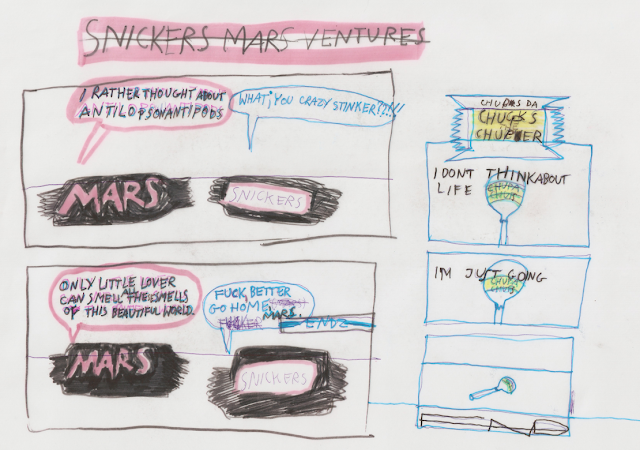 SNICKERS MARS VENTURES
I RATHER THOUGHT ABOUT
ANTILOPSONANTIPODS
WHAT, YOU CRAZY STINKER??!!!
MARS
SNICKERS
ONLY LITTLE LOVER
CAN SMELL ALL THE SMELLS
OF THIS BEAUTIFUL WORLD.
FUCK, BETTER
GO HOME,
MARS.
MARS
SNICKERS
CHUPAS DA
CHUCK'S
CHUPTER
I DONT THINK ABOUT
LIFE
CHUPA
CHUP
I'M JUST GOING
CHUPA
CHUP